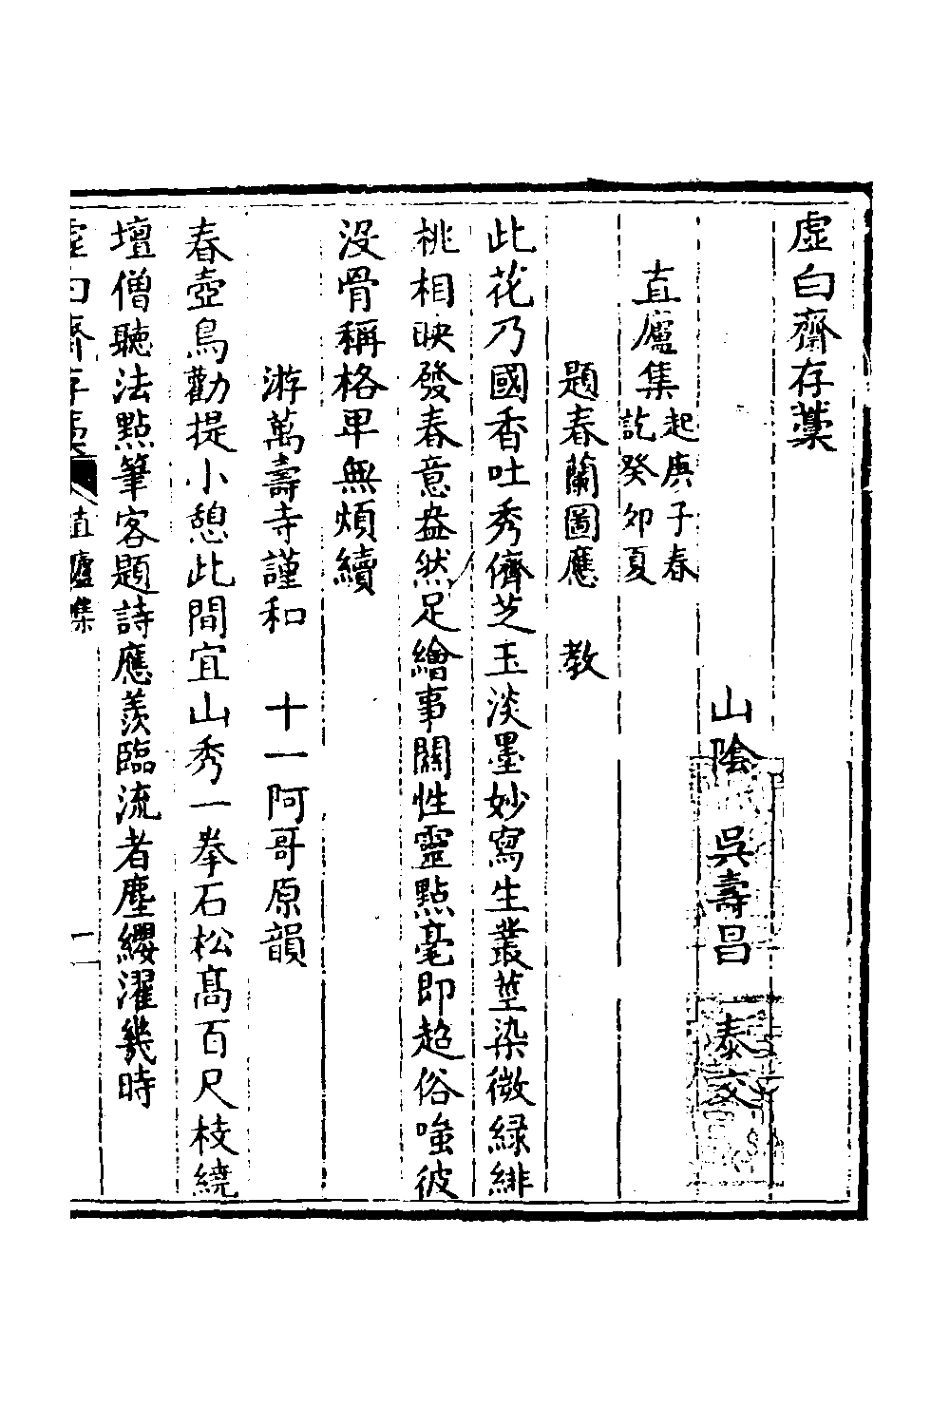 虛白齋存藳
山隂　吳壽昌　泰交
直廬集起庚子春訖癸卯夏
題春蘭圖應　教
此花乃國香吐秀儕芝玉淡墨妙寫生叢莖染微綠緋
桃相映發春意盎然足繪事關性靈點毫即超俗嗤彼
沒骨稱格卑無煩續
游萬壽寺謹和　十一阿哥原韻
春壺鳥勸提小憩此間宜山秀一拳石松髙百尺枝繞
壇僧聽法點筆客題詩應羨臨流者塵纓濯幾時
虛白齋存藳　直廬集　一